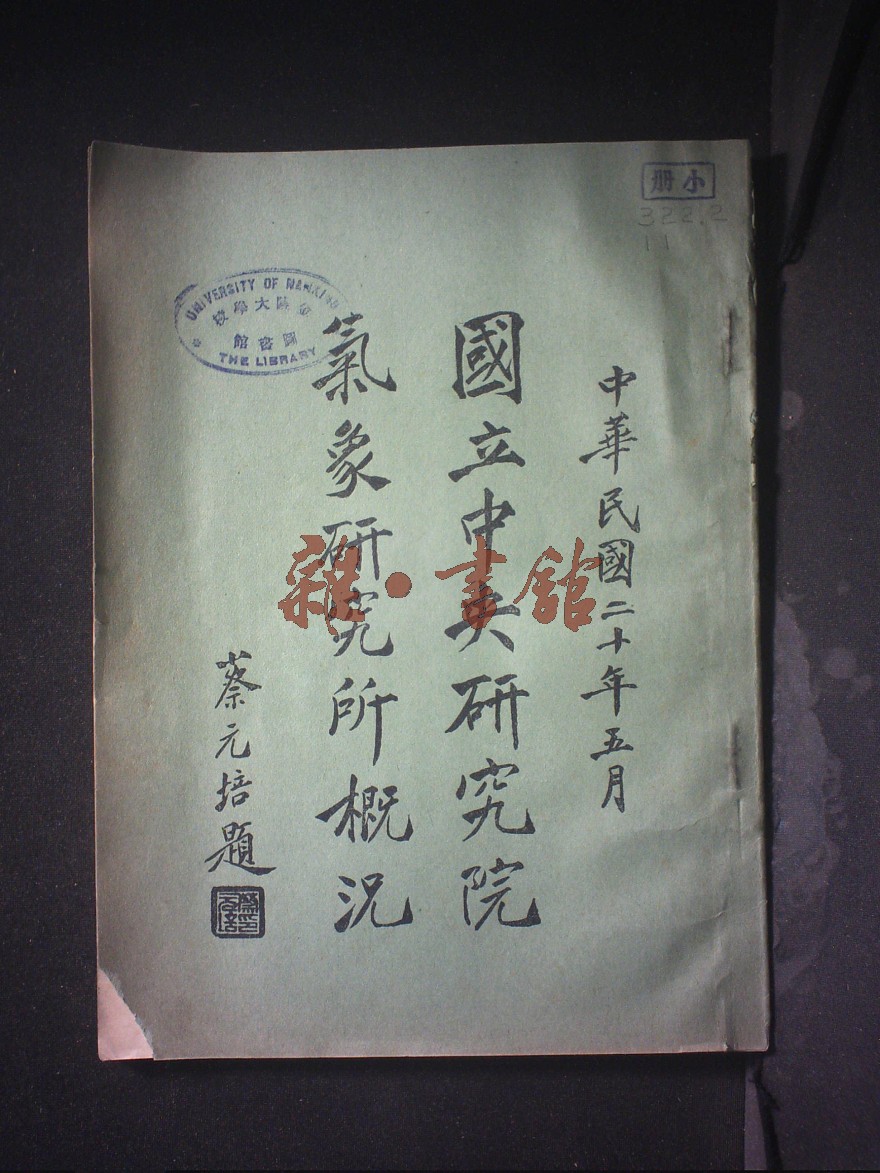 小册
322.2
11
中華民國二十年五月
國立中央研究院
氣象研究所概况
蔡元培題
UNIVERSITY OF NANKING
金陵大學校
圖書館
THE LIBRARY
雜·書館